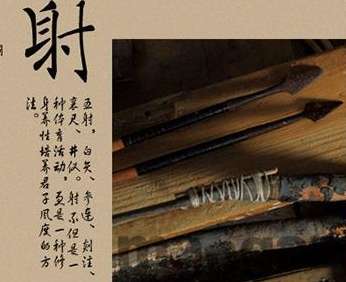 射
五射,白矢、参连、剡注、
襄尺、井仪。射不但是一
种体育活动,更是一种修
身养性培养君子风度的方
法。